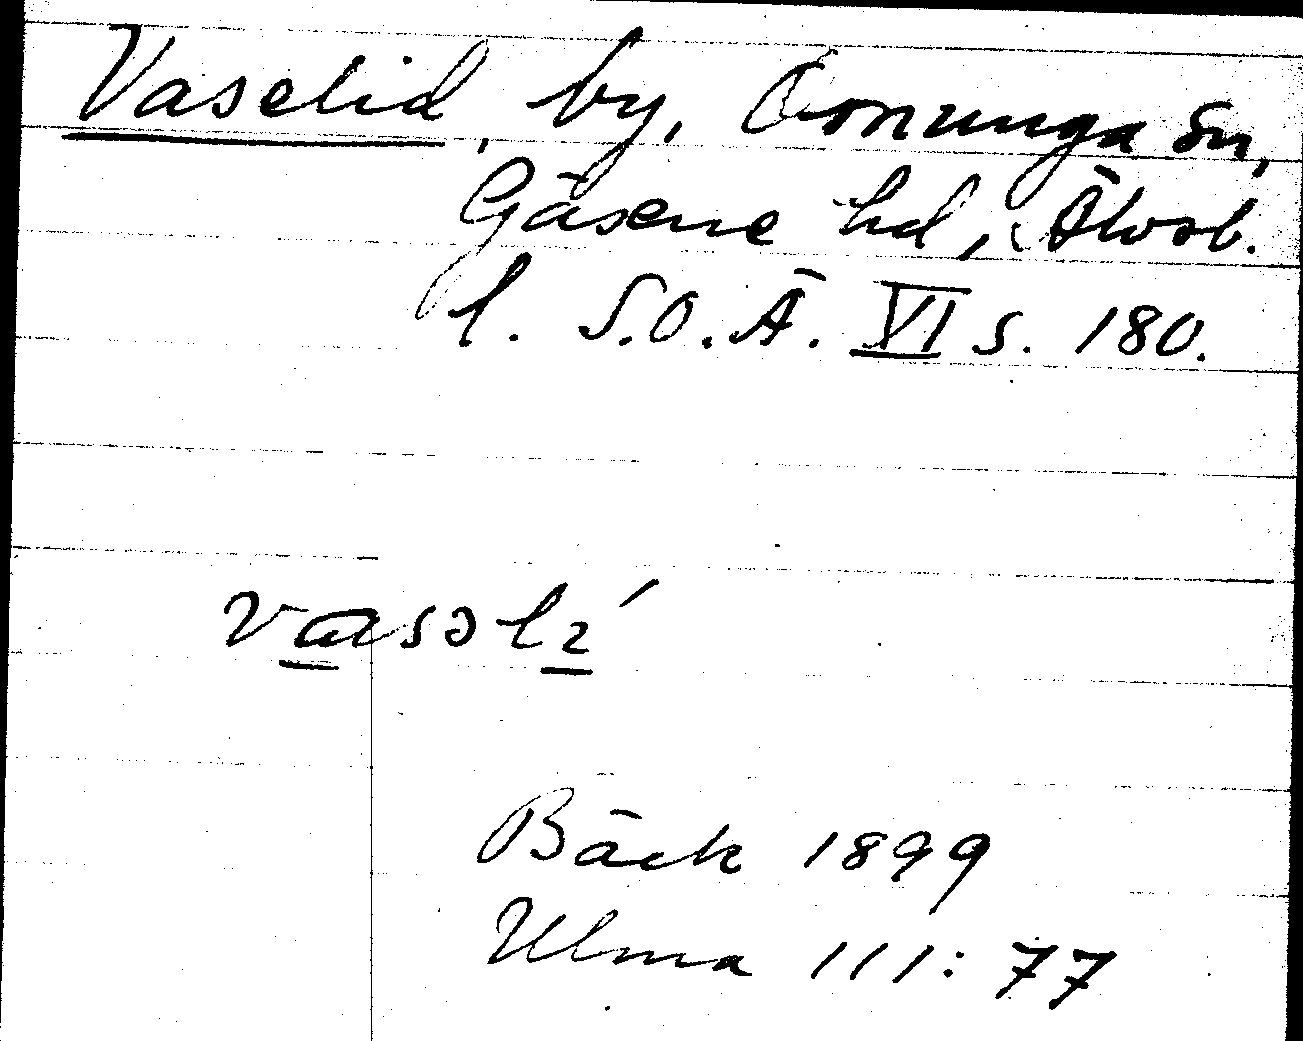 Vaselid, by, Öonunga sn,
Gäsene hd, Älvsb.
l. S.O.Ä. VI s. 180.
vasəlı́
Bäck 1899
Ulma 111:77